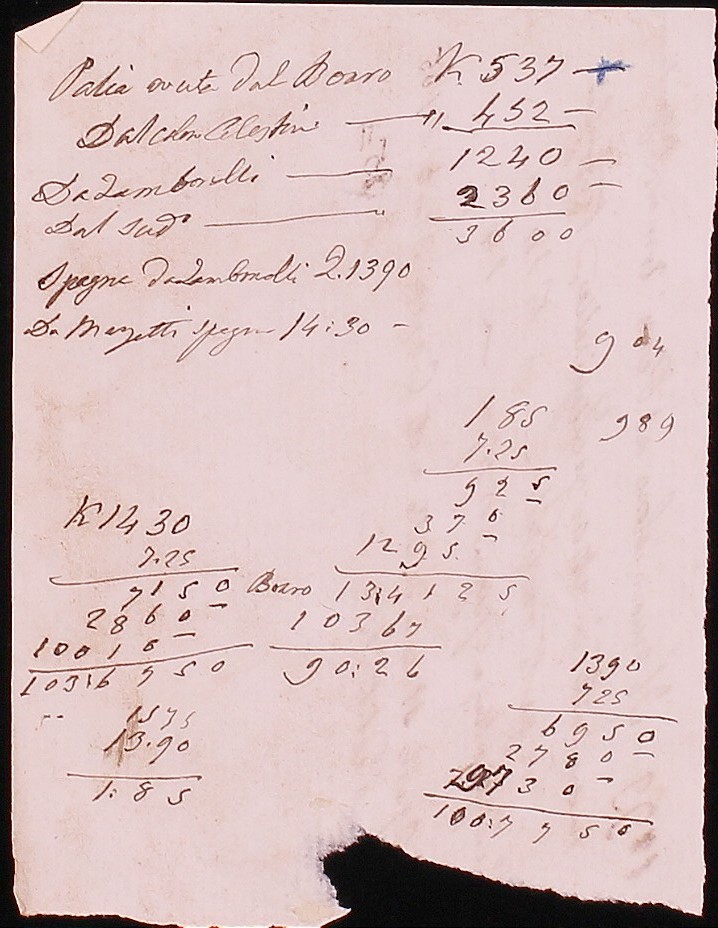 Palia avuta dal Boaro K. 537 —
Dal colon Celestin — " 452 —
1240 —
Da Zambonelli — 2360 —
Dal sud.o — 3600
Spagna da Zambonelli 2.1390
Da Mazzetti spagna 14:30 —
904
185 989
7.25
925
370
K 1430 1295
7.25
7150 Boaro 13:4125
2860 10367
10010 90:26
103:6750
1390
725
1575 6950
13.90 2780
1:85 9730
100:7750